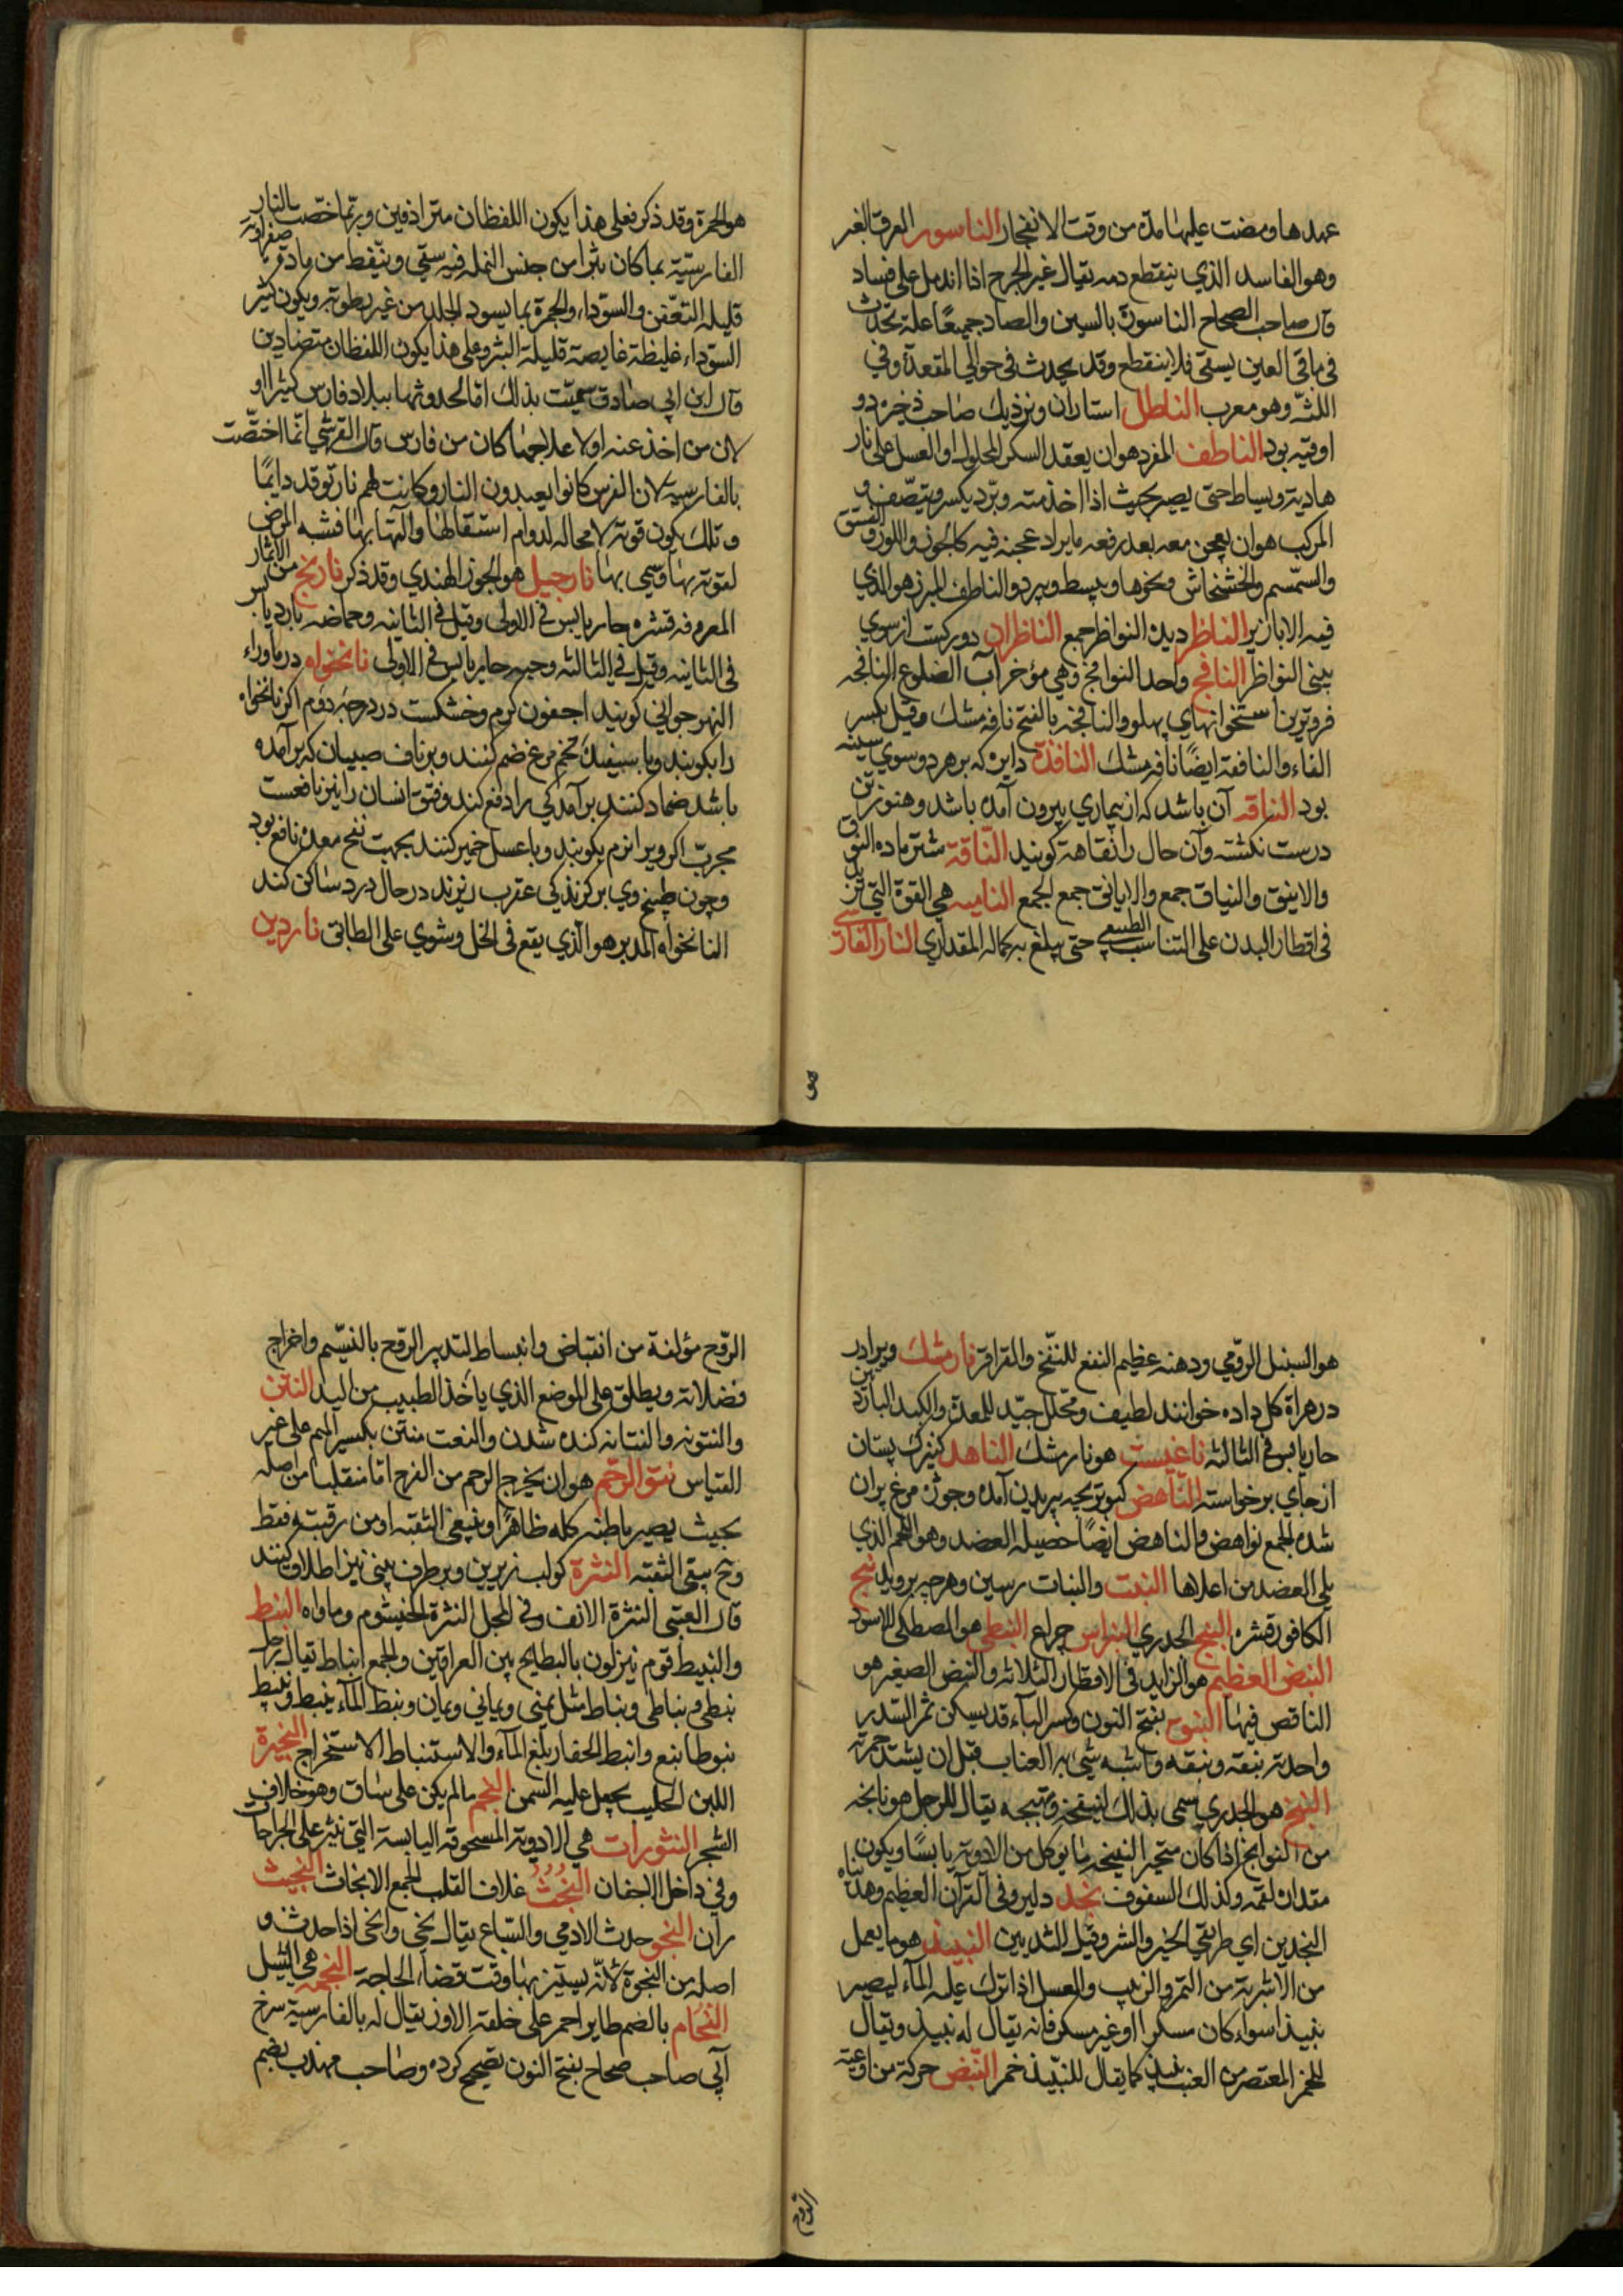 عهدها ومضت عليها مدة من وقت الانفجار الناسور العرق الغبر
وهو الفاسد الذي ينقطع دمه يقال غبر الجرح اذا اندمل على فساد
قال صاحب الصحاح الناسور بالسين والصاد جميعًا علة تحدث
في ماقي العين يسقي فلا ينقطع وقد يحدث في حوالي المقعدة وفي
اللثة وهو معرب الناطل استاران ونزديك صاحب ذخيره دو
اوقيه بود الناطف المفرد هو ان يعقد السكر المحلول او العسل على نار
هادية ويساط حتى يصير بحيث اذا اخذ منه وبرد يكسر ويتصف و
المركب هو ان يعجن معه بعد رفعه ما يراد عجنه فيه كالجوز واللوز والفستق
والسمسم والخشخاش ونحوها ويبسط ويبرد والناطف المبزر هو الذي
فيه الابازير الناظر ديده النواظر جمع الناظران دو ركست از سوي
بيني النواظر النافج واحد النوافج وهي مؤخرات الضلوع النافجه
فروترين استخوانهاي پهلو والنافجه بالفتح نافه مشك وقيل بكسر
الفاء والنافقة ايضًا نافه مشك النافذة دايره كه بر هر دو سوي سينه
بود الناقه آن باشد كه از بيماري بيرون آمده باشد وهنوز تن
درست نكشته وآن حال را نقاهة كويند الناقة شتر ماده النوق
والاينق والنياق جمع والايانق جمع الجمع الناميه هي القوة التي تزيد
في اقطار البدن على التناسب الطبيعي حتى يبلغ به كماله المقداري النار الفارسي
هو الجمرة وقد ذكر فعلى هذا يكون اللفظان مترادفين وربما خصت بالنار
الفارسية بما كان بثرا من جنس النملة فيه سقي وتنفط من مادة صفراويه
قليلة التعفن والسوداء والجمرة بما يسود الجلد من غير رطوبة ويكون كثير
السوداء غليظة غايصة قليلة البثر وعلى هذا يكون اللفظان متضادين
قال ابن ابي صادق سميت بذلك اما لحدوثها ببلاد فارس كثيرا او
لان من اخذ عنه اولا علاجها كان من فارس وقال القرشي انما اختصت
بالفارسية لان الفرس كانوا يعبدون النار وكانت لهم نار توقد دايمًا
وتلك يكون قوية لا محاله لدوام اشتعالها والتهابها فشبه المرض
لقوته بها وسمي بها نارجيل هو الجوز الهندي وقد ذكر نارنج من الاثمار
المعروفه قشره حار يابس في الاولى وقيل في الثانيه وحماضه بارد يابس
في الثانيه وقيل في الثالثه وحبه حار يابس في الاولى نانخواه در ماوراء
النهر جواني كويند اجفعون كرم وخشكست در درجه دوم اكر نانخواه
را بكوبند وبا سپيده تخم مرغ ضم كنند وبر ناف صبيان كه برآمده
باشد ضماد كنند برآمدكي را دفع كند وفتق انسان را نيز نافعست
مجرب اكر ويرا نرم بكوبند وبا عسل خمير كنند بجهت نفخ معده نافع بود
وچون طبيخ وي بر كزندكي عقرب ريزند در حال درد ساكن كند
النانخواه المدبر هو الذي يقع في الخل وشوي على الطابق ناردين
هو
هو السنبل الرومي ودهنه عظيم النفع للنفخ والقراقر نارمشك ويرا در
در هراة كل داده خوانند لطيف ومحلل جيد للمعدة والكبد الباردين
حار يابس في الثالثه ناغيست هو نارمشك الناهد كنيزك پستان
از جاي برخواسته الناهض كبوتر بچه پريدن آمده وچون مرغ پران
شده الجمع نواهض والناهض ايضًا خصيلة العضد وهو اللحم الذي
يلي العضد من اعلاها النبت والنبات رستن وهرچه برويد نبج
الكافور قشره النبخ الجدري النبراس چراغ النبطي هو المصطكى الاسود
النبض العظيم هو الزايد في الاقطار الثلاثه والنبض الصغير هو
الناقص فيها النبوج بفتح النون وكسر الباء قد يسكن ثمر السدر
واحدته نبقه ونبقه واشبه شيء به العناب قبل ان يشتد حمرته
النبخ هو الجدري سمي بذلك لتنفخه وتهبجه يقال للرجل هو نابخه
من النوابخ اذا كان متجبر النبيخه ما يوكل من الادوية يابسًا ويكون
مقداره لقمه وكذلك السفوف نجد دلير وفي القرآن العظيم وهديناه
النجدين اي طريقي الخير والشر وقيل الثديين النبيذ هو ما يعمل
من الاشربة من التمر والزبيب والعسل اذا ترك عليه الماء ليصير
نبيذا سواء كان مسكرا او غير مسكر فانه يقال له نبيذ ويقال
للخمر المعتصر من العنب نبيذ كما يقال للنبيذ خمر النبض حركة من اوعية
الروح مؤلفة من انقباض وانبساط لتدبير الروح بالنسيم واخراج
فضلاته ويطلق على الموضع الذي ياخذ الطبيب من اليد النتن
والنتونه والنتانه كنده شدن والنعت منتن بكسر الميم على غير
القياس نتو الرحم هو ان يخرج الرحم من الفرج اما منقلبا من اصله
بحيث يصير باطنه كله ظاهرًا وينبغي الثقبه او من رقبته فقط
وح يبقى الثقبه النثرة كولب زيرين وبر طرف بيني نيز اطلاق كنند
قال العتبي النثرة الانف وفي المجمل النثرة الخيشوم وما والاه النبط
والنبيط قوم ينزلون بالبطايح بين العراقين والجمع انباط يقال رجل
نبطي ونباطي ونباط مثل يمني ويماني ويمان ونبط الماء ينبط وينبط
نبوطا نبع وانبط الحفار بلغ الماء والاستنباط الاستخراج النجيرة
اللبن الحليب يجعل عليه السمن النجم ما لم يكن على ساق وهو خلاف
الشجر النثورات هي الادوية المسحوقة اليابسة التي تنثر على الجراحات
وفي داخل الاجفان النجث غلاف القلب الجمع الانجاث النجيث
ران النجو حدث الادمي والسباع يقال نجي وانجى اذا حدث و
اصله من النجوة لانه يستتر بها وقت قضاء الحاجة النجمه هي الثيل
النحام بالضم طاير احمر على خلقة الاوز يقال له بالفارسية سرخ
آبي صاحب صحاح بفتح النون تصحيح كرده وصاحب مهذب بضم
الروح